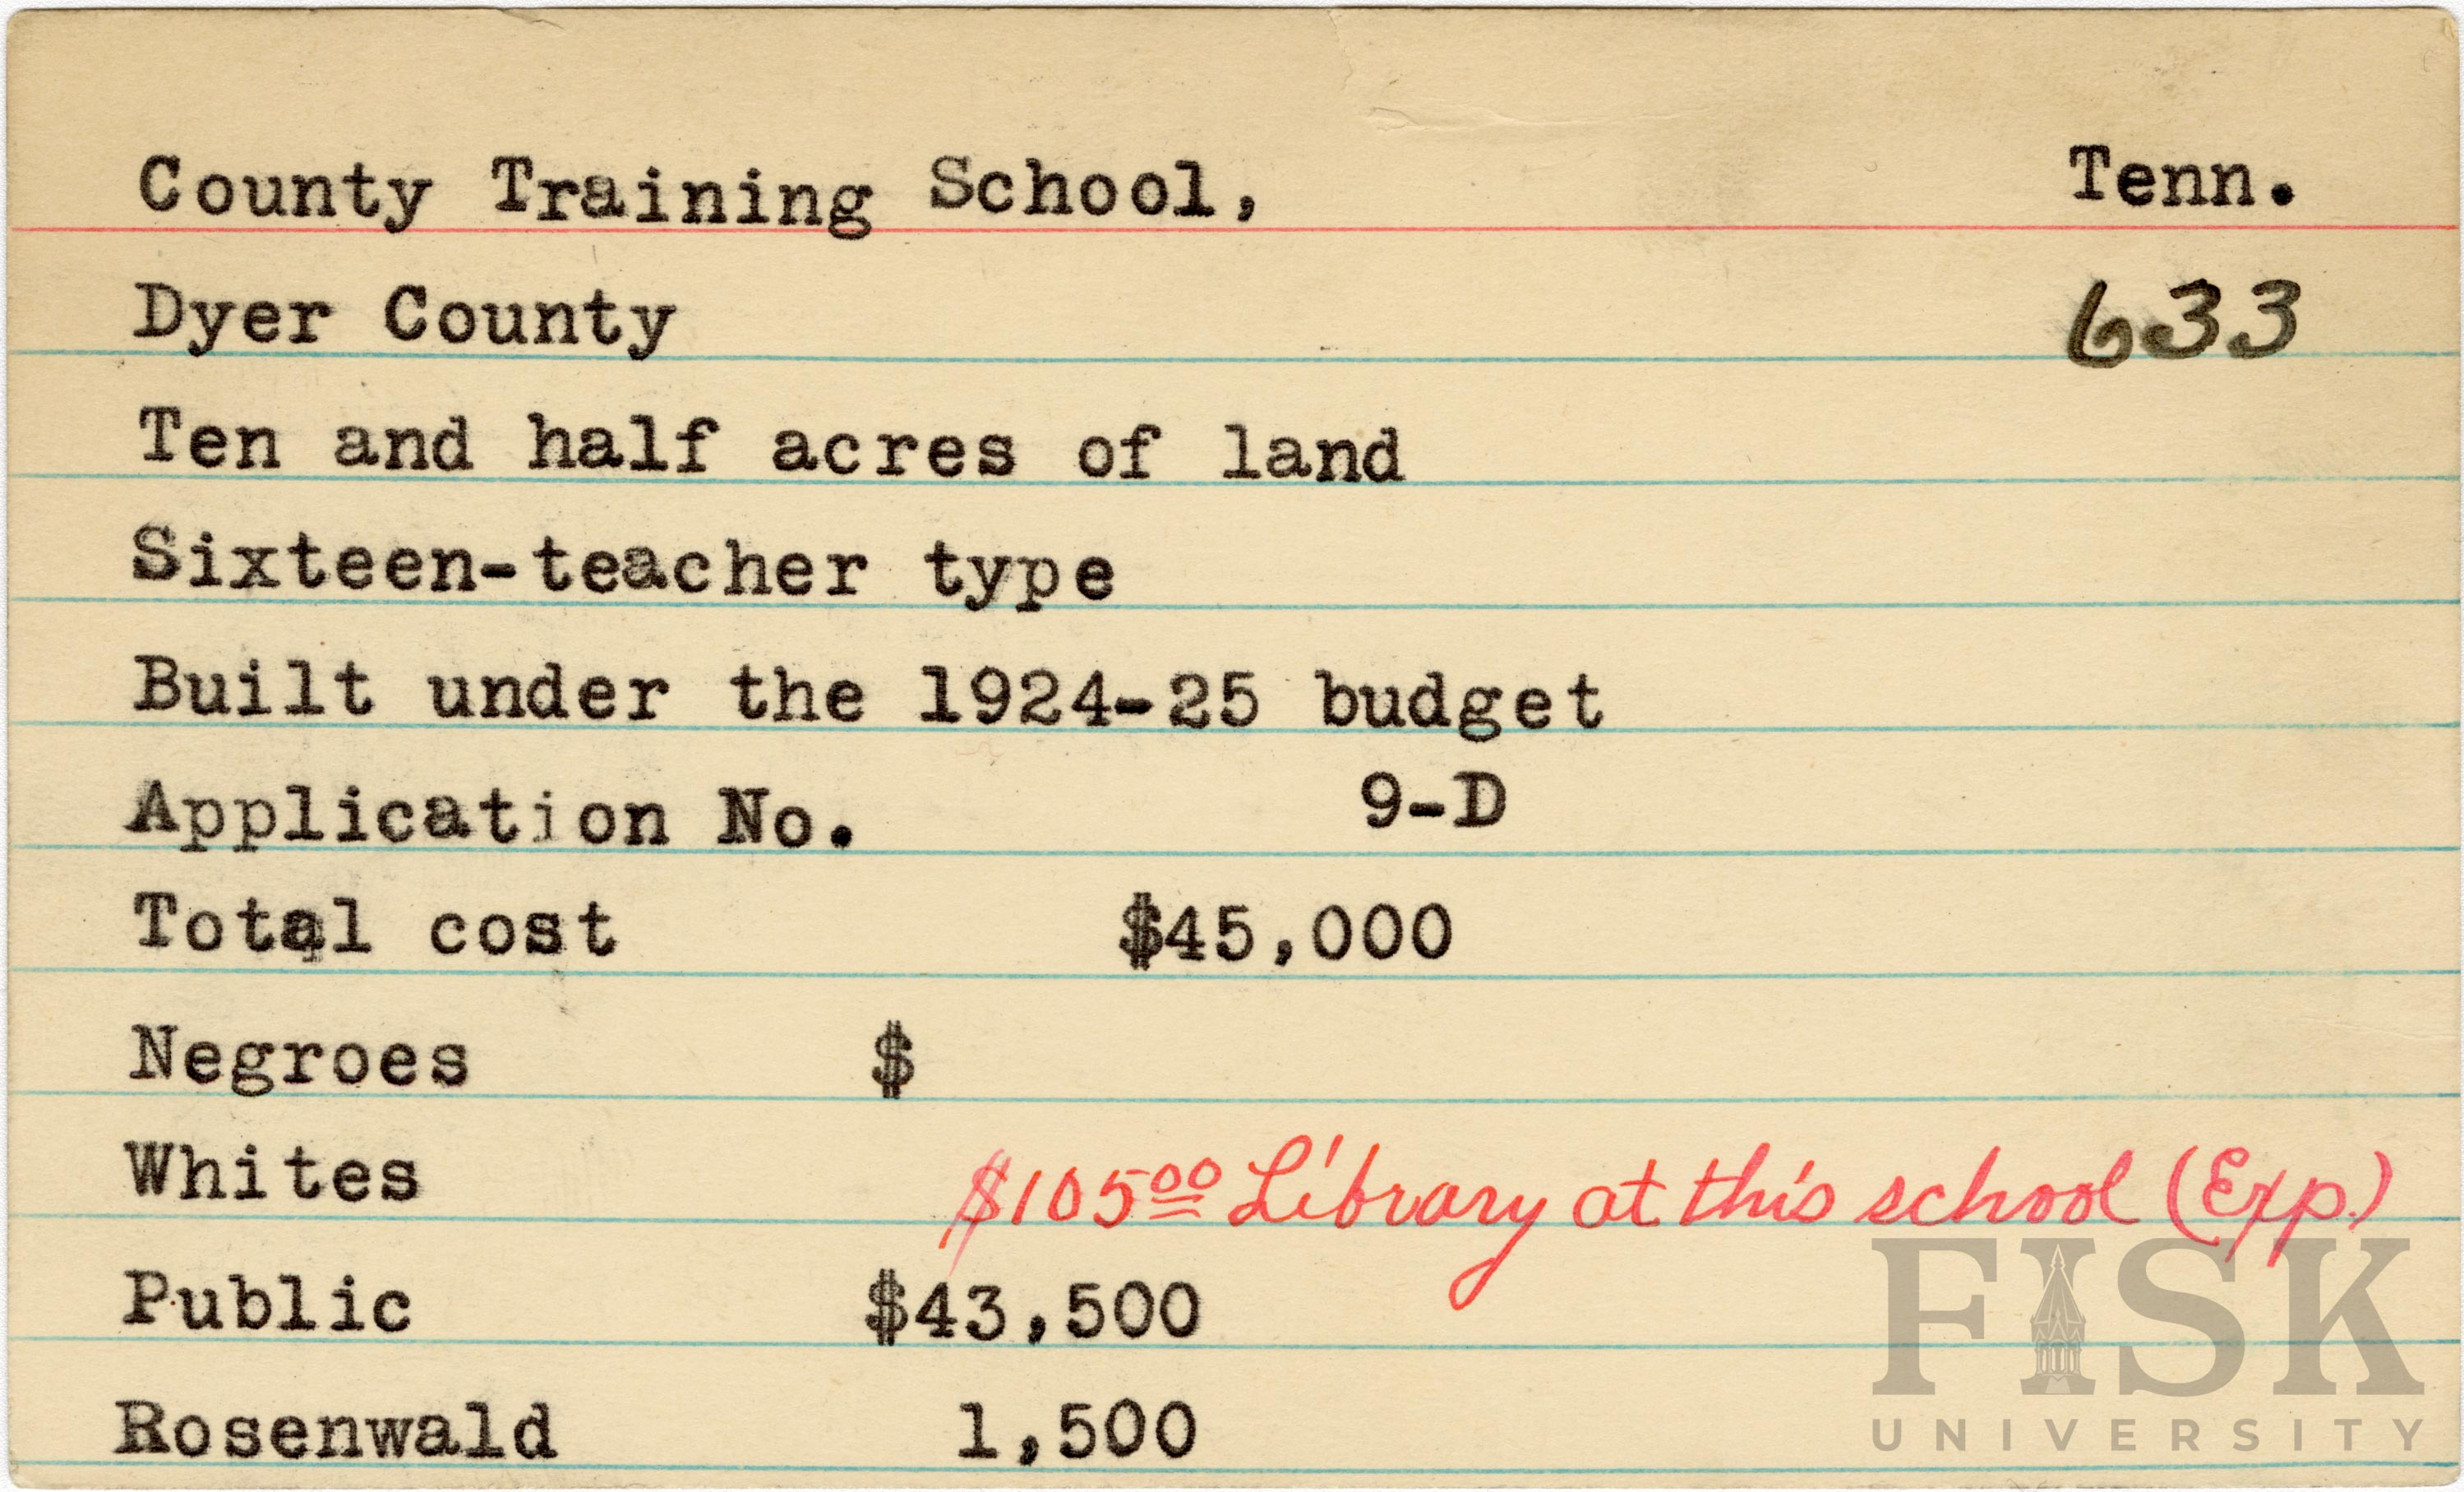 County Training School, Tenn.
Dyer County 633
Ten and half acres of land
Sixteen-teacher type
Built under the 1924-25 budget
Application No. 9-D
Total cost $45,000
Negroes $
Whites $105.00 Library at this school (Exp.)
Public $43,500
Rosenwald 1,500
FISK
UNIVERSITY